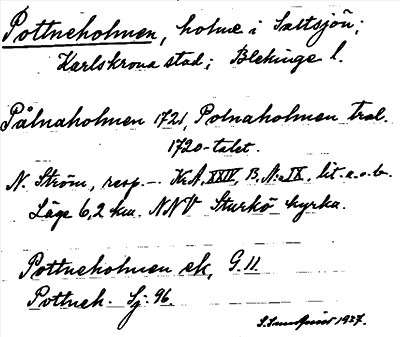 Pottneholmen, holme i Saltsjön;
Karlskrona stad; Blekinge l.
Pålnaholmen 1721, Polnaholmen trol.
1720-talet.
N. Ström, resp. K.A. XXIV, B. N:o IX, lit. a. o. b.
Läge 6,2 km. NNV Sturkö kyrka.
Pottneholmen ek, G. 11.
Pottneh. Sj. 96.
1927.